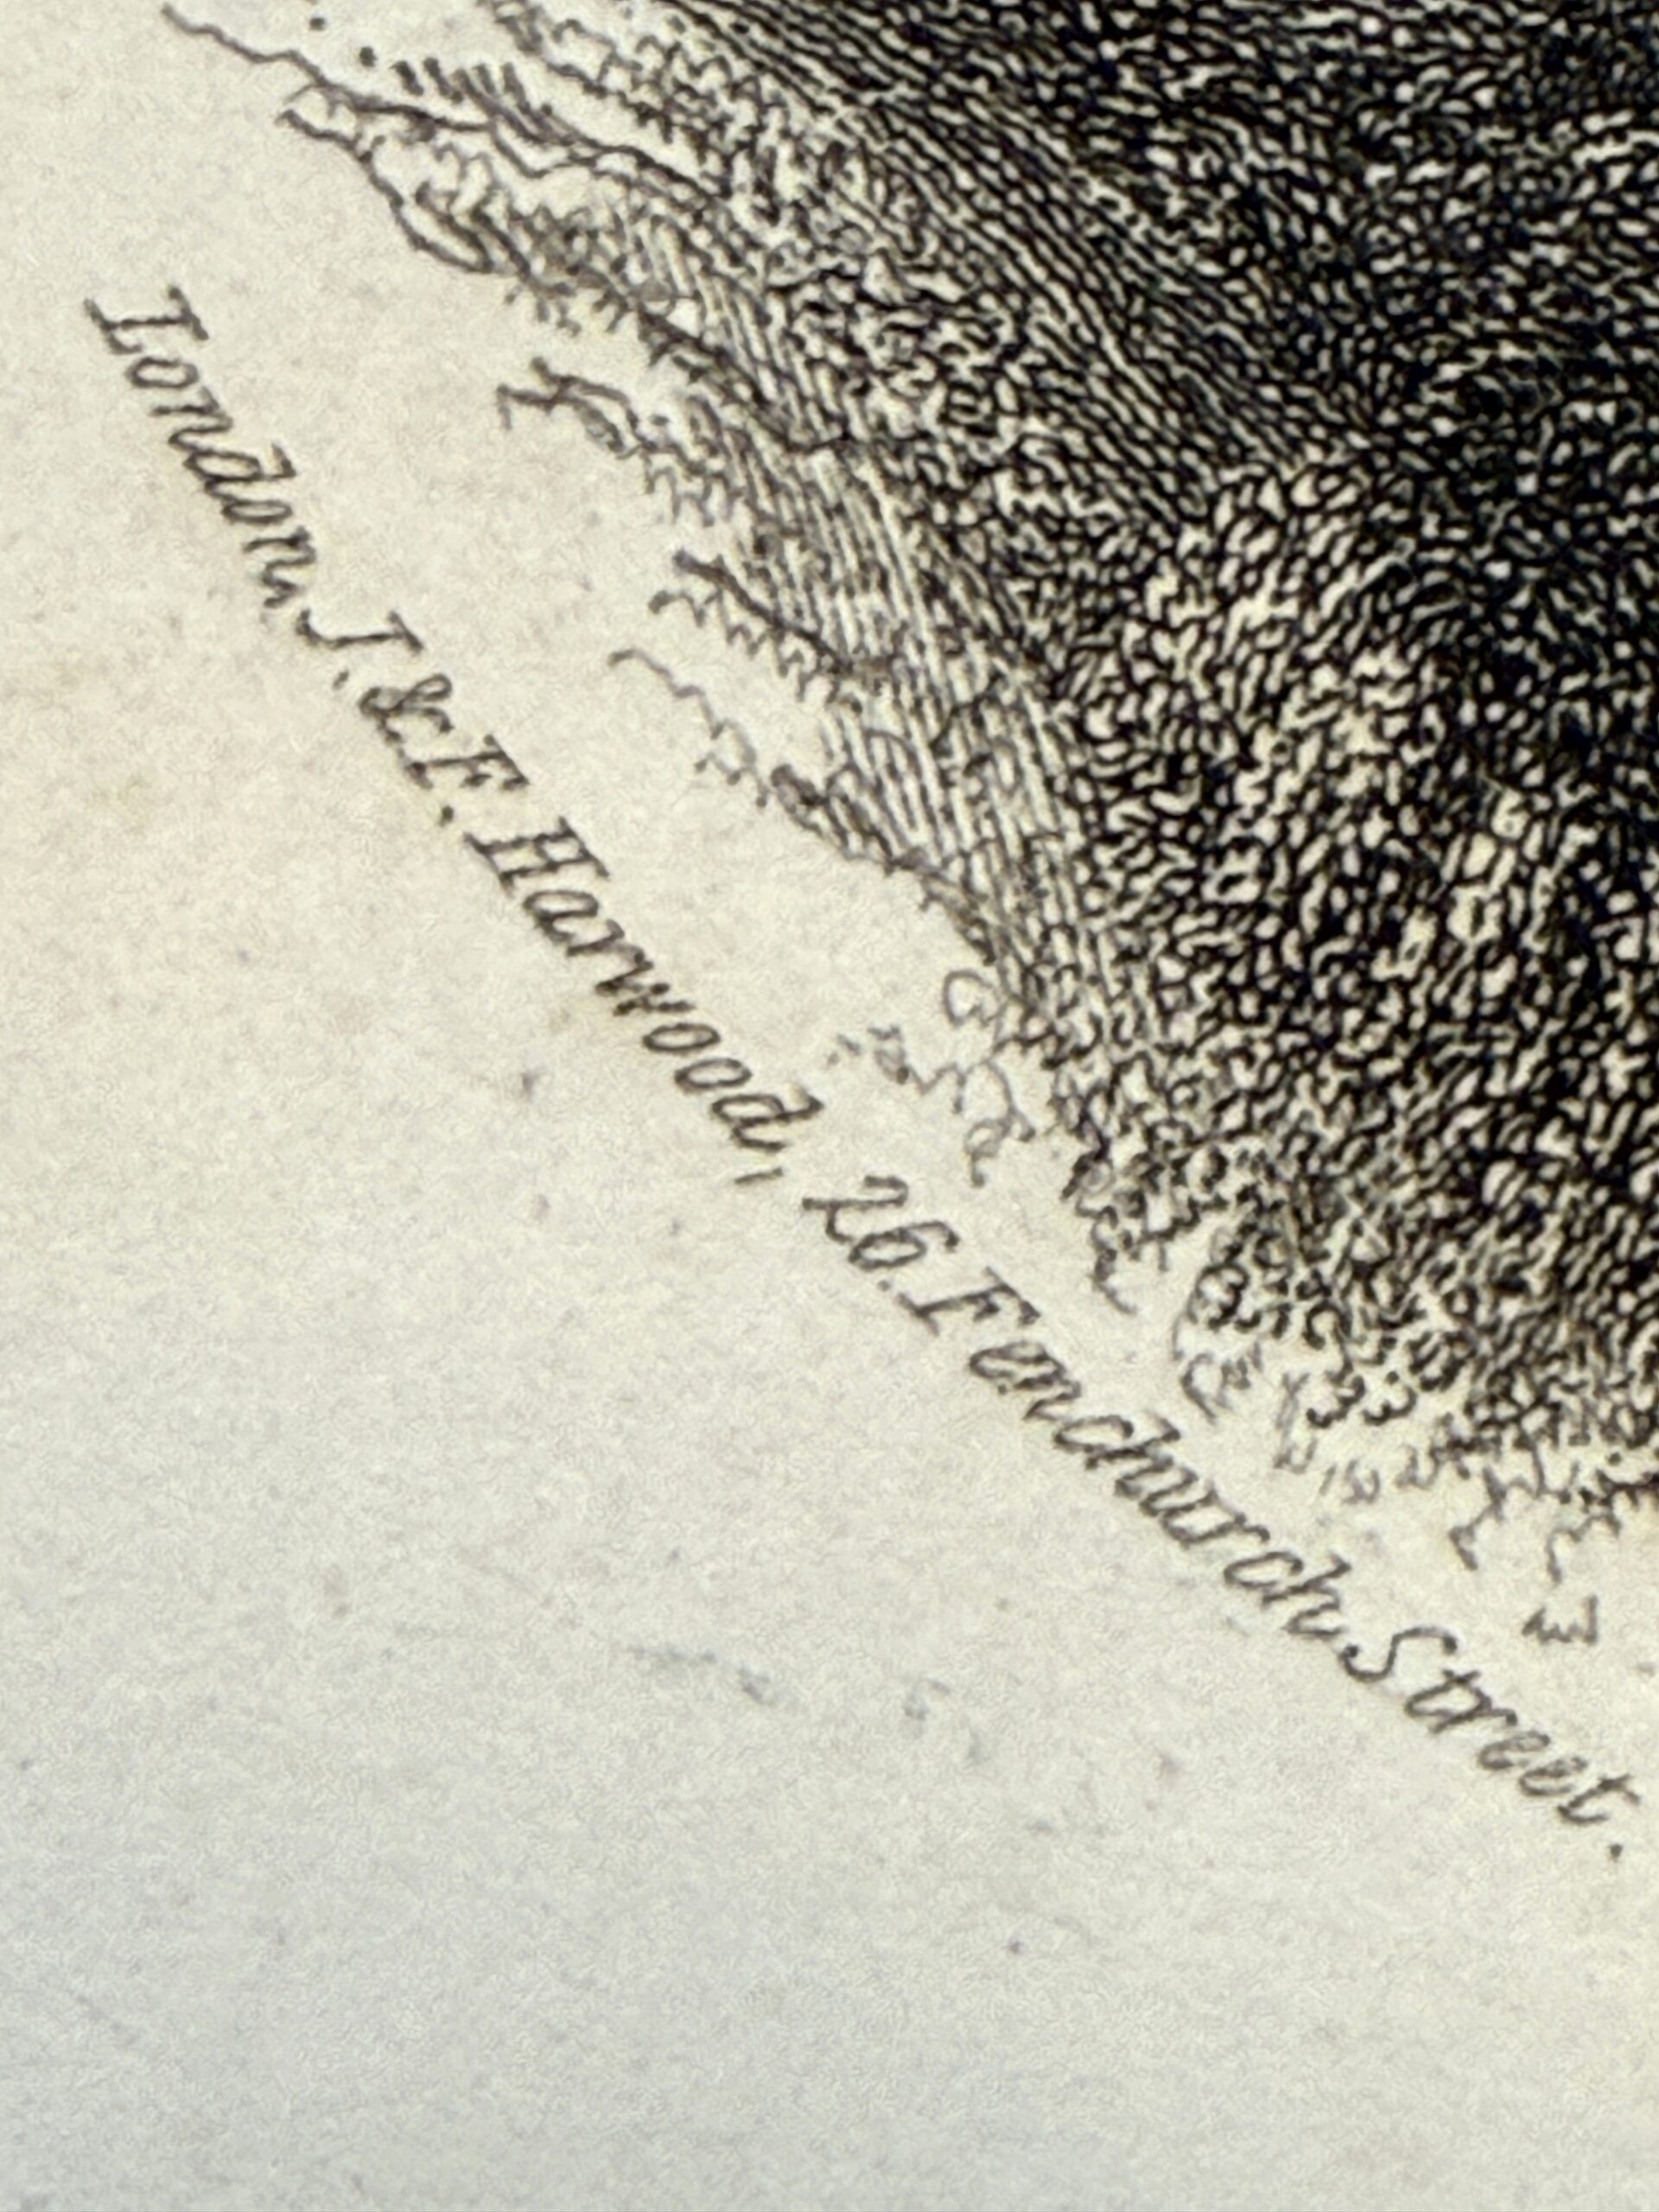 London, J. & F. Harwood, 26. Fenchurch Street.